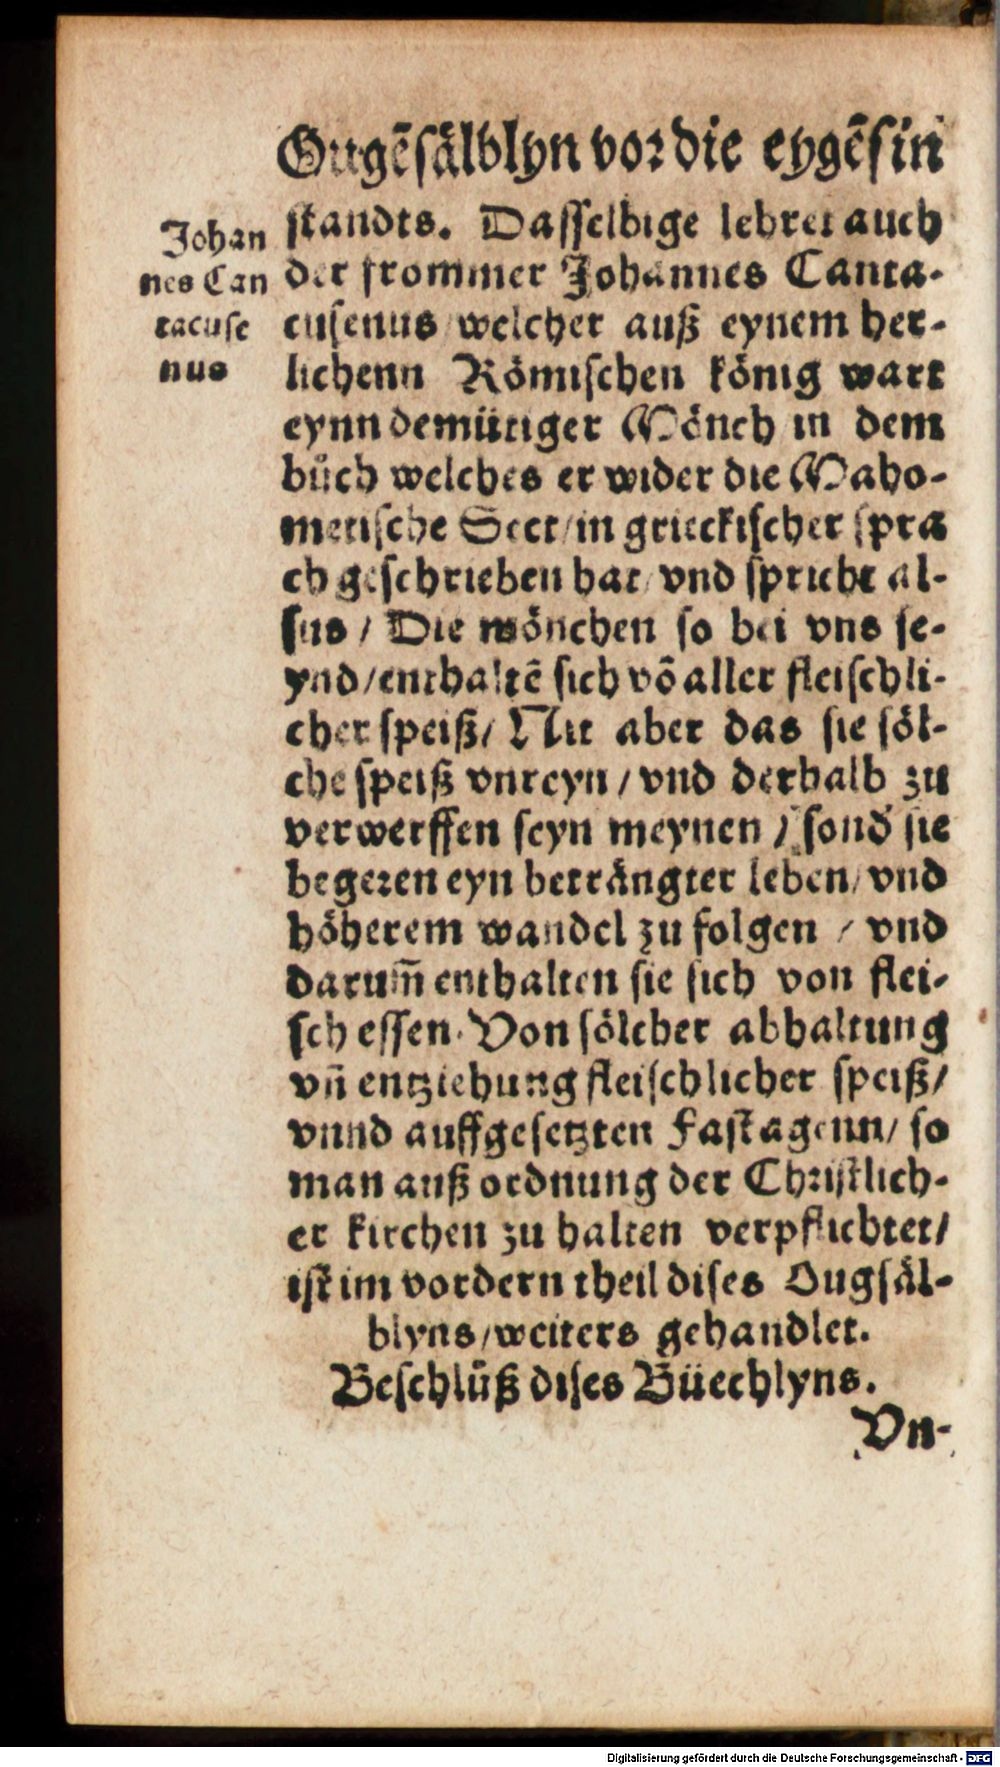 Ougẽsälblyn vor die eygẽsin
Johan
nes Can
tacuse
nus
standts. Dasselbige lehret auch
der frommer Johannes Canta-
cusenus / welcher auß eynem her-
lichenn Römischen könig wart
eynn demütiger Mönch in dem
bůch welches er wider die Maho-
metische Sect / in grieckischer spra
ch geschrieben hat / vnd spricht al-
sus / Die mönchen so bei vns se-
ynd / enthaltẽ sich võ aller fleischli-
cher speiß / Nit aber das sie söl-
che speiß vnreyn / vnd derhalb zu
verwerffen seyn meynen / sond' sie
begeren eyn beträngter leben / vnd
höherem wandel zu folgen / vnd
darum̃ enthalten sie sich von flei-
sch essen. Von sölcher abhaltung
vñ entziehung fleischlicher speiß /
vnnd auffgesetzten Fastagenn / so
man auß ordnung der Christlich-
er kirchen zu halten verpflichtet /
ist im vordern theil dises Ougsäl-
blyns / weiters gehandlet.
Beschlůß dises Büechlyns.
Vn-
Digitalisierung gefördert durch die Deutsche Forschungsgemeinschaft - DFG